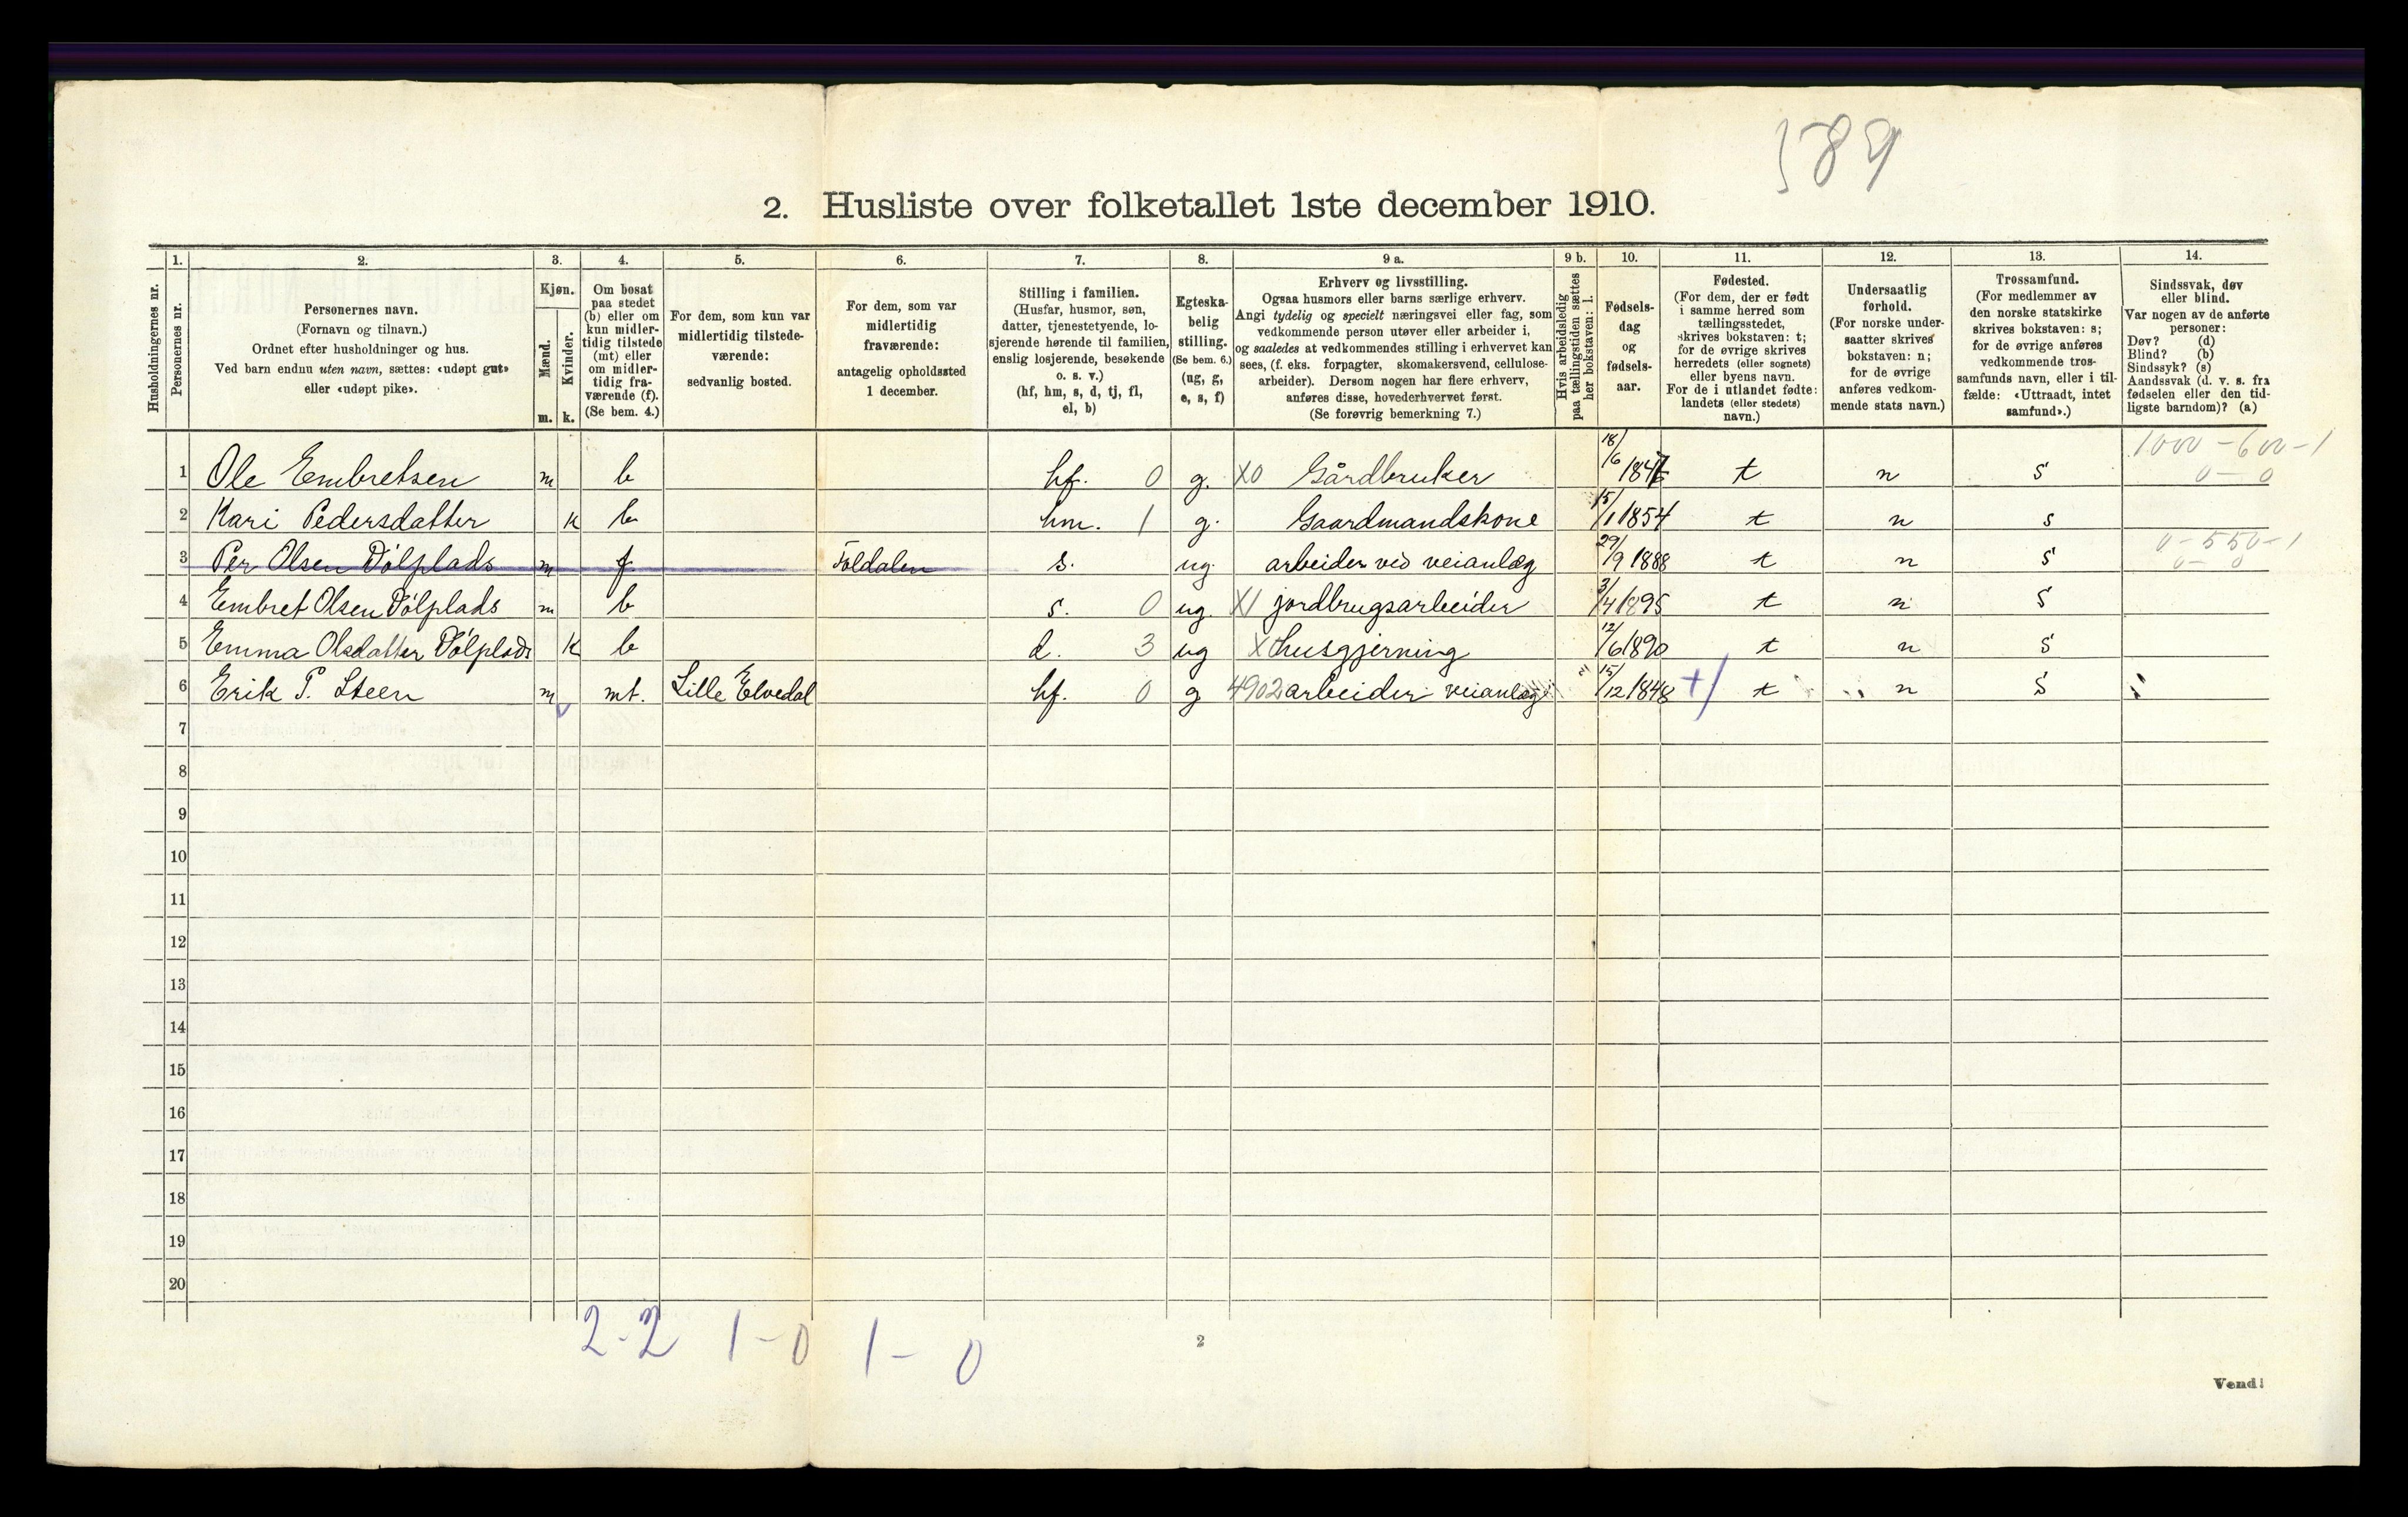 589
2. Husliste over folketallet 1ste december 1910.
Husholdningernes nr.
1.
Personernes nr.
2.
Personernes navn.
(Fornavn og tilnavn.)
Ordnet efter husholdninger og hus.
Ved barn endnu uten navn, sættes: «udøpt gut»
eller «udøpt pike».
3.
Kjøn.
Mænd.
m.
Kvinder.
k.
4.
Om bosat
paa stedet
(b) eller om
kun midler-
tidig tilstede
(mt) eller
om midler-
tidig fra-
værende (f).
(Se bem. 4.)
5.
For dem, som kun var
midlertidig tilstede-
værende:
sedvanlig bosted.
6.
For dem, som var
midlertidig
fraværende:
antagelig opholdssted
1 december.
7.
Stilling i familien.
(Husfar, husmor, søn,
datter, tjenestetyende, lo-
sjerende hørende til familien,
enslig losjerende, besøkende
o. s. v.)
(hf, hm, s, d, tj, fl,
el, b)
8.
Egteska-
belig
stilling.
(Se bem. 6.)
(ug, g,
e, s, f)
9 a.
Erhverv og livsstilling.
Ogsaa husmors eller barns særlige erhverv.
Angi tydelig og specielt næringsvei eller fag, som
vedkommende person utøver eller arbeider i,
og saaledes at vedkommendes stilling i erhvervet kan
sees, (f. eks. forpagter, skomakersvend, cellulose-
arbeider). Dersom nogen har flere erhverv,
anføres disse, hovederhvervet først.
(Se forøvrig bemerkning 7.)
9 b.
Hvis arbeidsledig
paa tællingstiden sættes
her bokstaven: l.
10.
Fødsels-
dag
og
fødsels-
aar.
11.
Fødested.
(For dem, der er født
i samme herred som
tællingsstedet,
skrives bokstaven: t;
for de øvrige skrives
herredets (eller sognets)
eller byens navn.
For de i utlandet fødte:
landets (eller stedets)
navn.)
12.
Undersaatlig
forhold.
(For norske under-
saatter skrives
bokstaven: n;
for de øvrige
anføres vedkom-
mende stats navn.)
13.
Trossamfund.
(For medlemmer av
den norske statskirke
skrives bokstaven: s;
for de øvrige anføres
vedkommende tros-
samfunds navn, eller i til-
fælde: «Uttraadt, intet
samfund».)
14.
Sindssvak, døv
eller blind.
Var nogen av de anførte
personer:
Døv? (d)
Blind? (b)
Sindssyk? (s)
Aandssvak (d. v. s. fra
fødselen eller den tid-
ligste barndom)? (a)
1000 - 600 - 1
1 Ole Embretsen m b hf. 0 g. X0 Gårdbruker 18/6 184 t n s 0 - 0
2 Kari Pedersdatter k b hm. 1 g. Gaardmandskone 15/1 1854 t n s
0 - 550 - 1
3 Per Olsen Dølplads m f Foldalen s. ug. arbeider ved veianlæg 29/9 1888 t n s 0 - 0
4 Embret Olsen Dølplads m b s. 0 ug. X1 jordbrugsarbeider 3/4 1895 t n s
5 Emma Olsdatter Dølplads k b d. 3 ug X husgjerning 12/6 1890 t n s
6 Erik P. Steen m mt. Lille Elvedal hf. 0 g 4902 arbeider veianlæg 15/12 1848 +/ t n s
7
8
9
10
11
12
13
14
15
16
17
18
19
20
2-2 1-0 1-0
2
Vend!